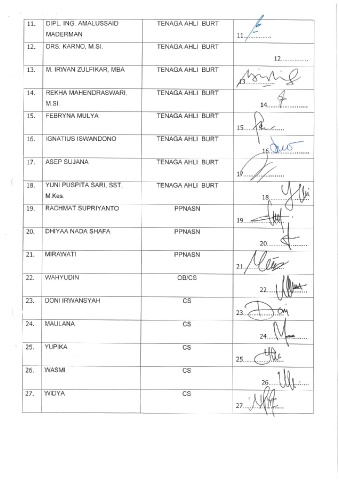 11. DIPL. ING. AMALUSSAID TENAGA AHLI BURT
MADERMAN 11
12. DRS. KARNO, M.SI. TENAGA AHLI BURT
12
13. M. IRWAN ZULFIKAR, MBA TENAGA AHLI BURT
13
14. REKHA MAHENDRASWARI, TENAGA AHLI BURT
M.SI. 14
15. FEBRYNA MULYA TENAGA AHLI BURT
15
16. IGNATIUS ISWANDONO TENAGA AHLI BURT
16
17. ASEP SUJANA TENAGA AHLI BURT
17
18. YUNI PUSPITA SARI, SST. TENAGA AHLI BURT
M.Kes. 18
19. RACHMAT SUPRIYANTO PPNASN
19
20. DHIYAA NADA SHAFA PPNASN
20
21. MIRAWATI PPNASN
21
22. WAHYUDIN OB/CS
22
23. DONI IRWANSYAH CS
23
24. MAULANA CS
24
25. YUPIKA CS
25
26. WASMI CS
26
27. WIDYA CS
27